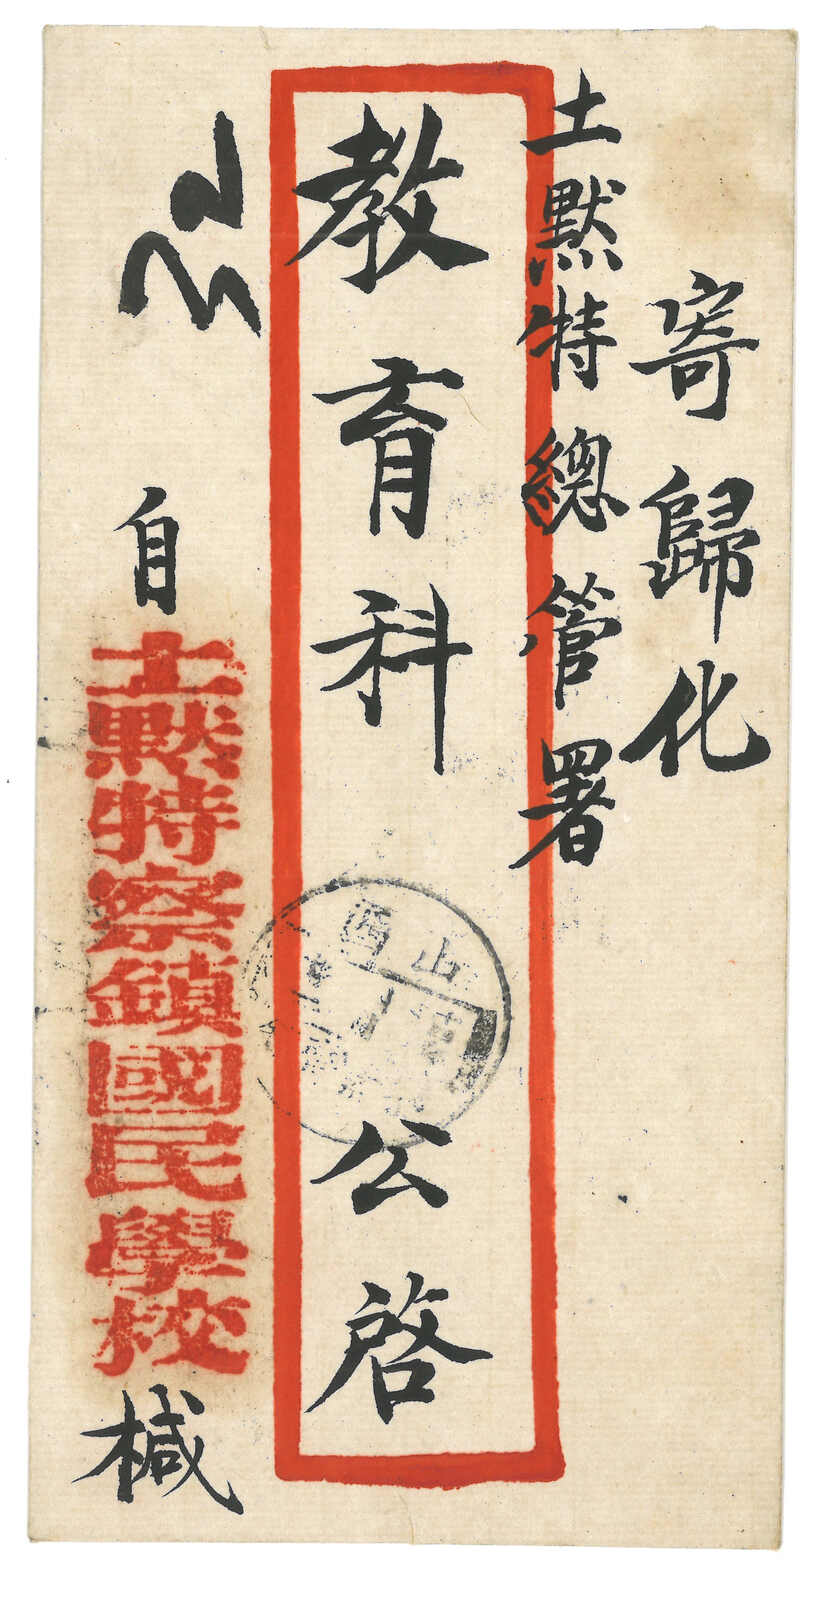 寄歸化
土默特總管署
教育科 公啓
自土默特察鎮國民學校椷
山西